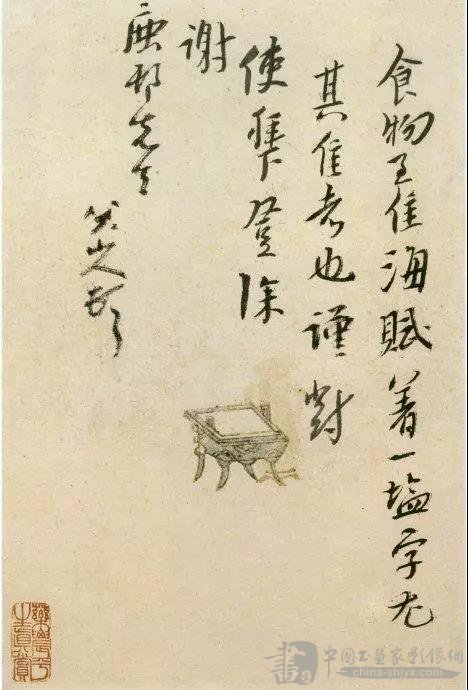 食物至佳海賦着一塩字尤
其佳者也謹對
使拜登除
謝
鹿邨先生
八大山人頓首
中国书画家影像網
china-shjyx.com